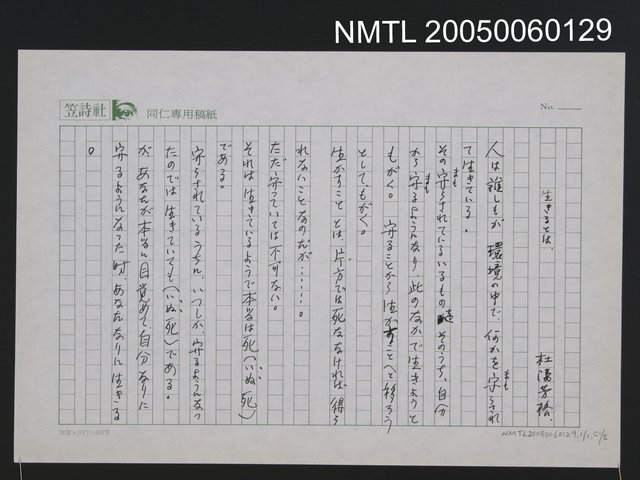 NMTL 20050060129
笠詩社
同仁専用稿紙
No.
生きるとは、
杜潘芳格、
人は誰しもが 環境の中で、何かを守らされ
まも
て生きている。
その守らされているもの そのうち、自分
まも
から守るようになり、此のなかで生きようと
まも
もがく。 守ることから生かすこと(と移ろう
としてもがく。
生かすこと とは、片方では死ななければ、得ら
れないことなのだが‥‥‥。
ただ守っていては不可ない。
それは生きているようで本当は死(いぬ死)
である。
守らされているうちに、いつしか、守るようになっ
たのでは生きていても(いぬ死)である。
が あなたが本当に目覚めて、自分なりに
守るようになった時、あなたなりに生きる
。
20行×20字=400字
NMTL20050060129,1/1,